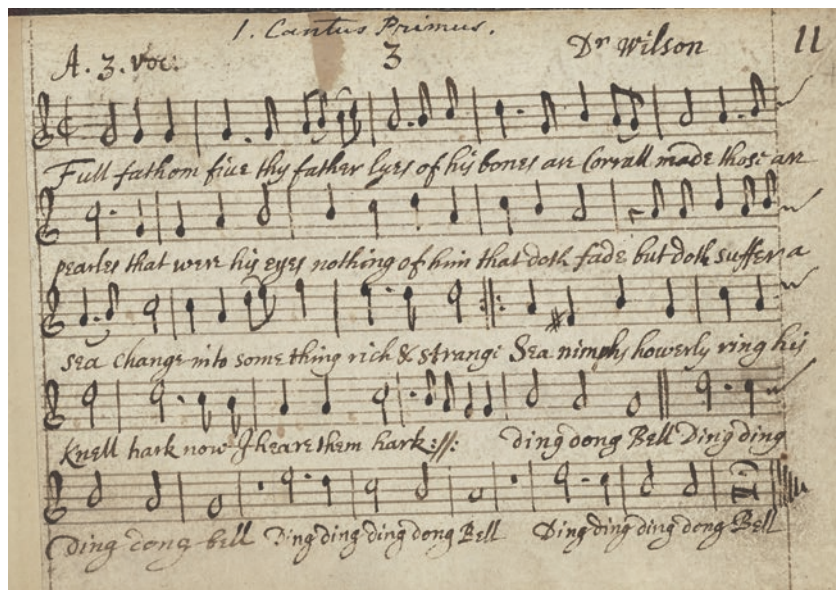 1. Cantus Primus.
A. 3. voc:
3
Dr Wilson
11
Full fathom fiue thy father lyes of his bones are Corrall made those are
pearles that were his eyes nothing of him that doth fade but doth suffer a
sea change into some thing rich & strange Sea nimphs howerly ring his
knell hark now I heare them hark ://: ding dong Bell Ding ding
Ding dong bell Ding ding ding dong Bell Ding ding ding dong Bell